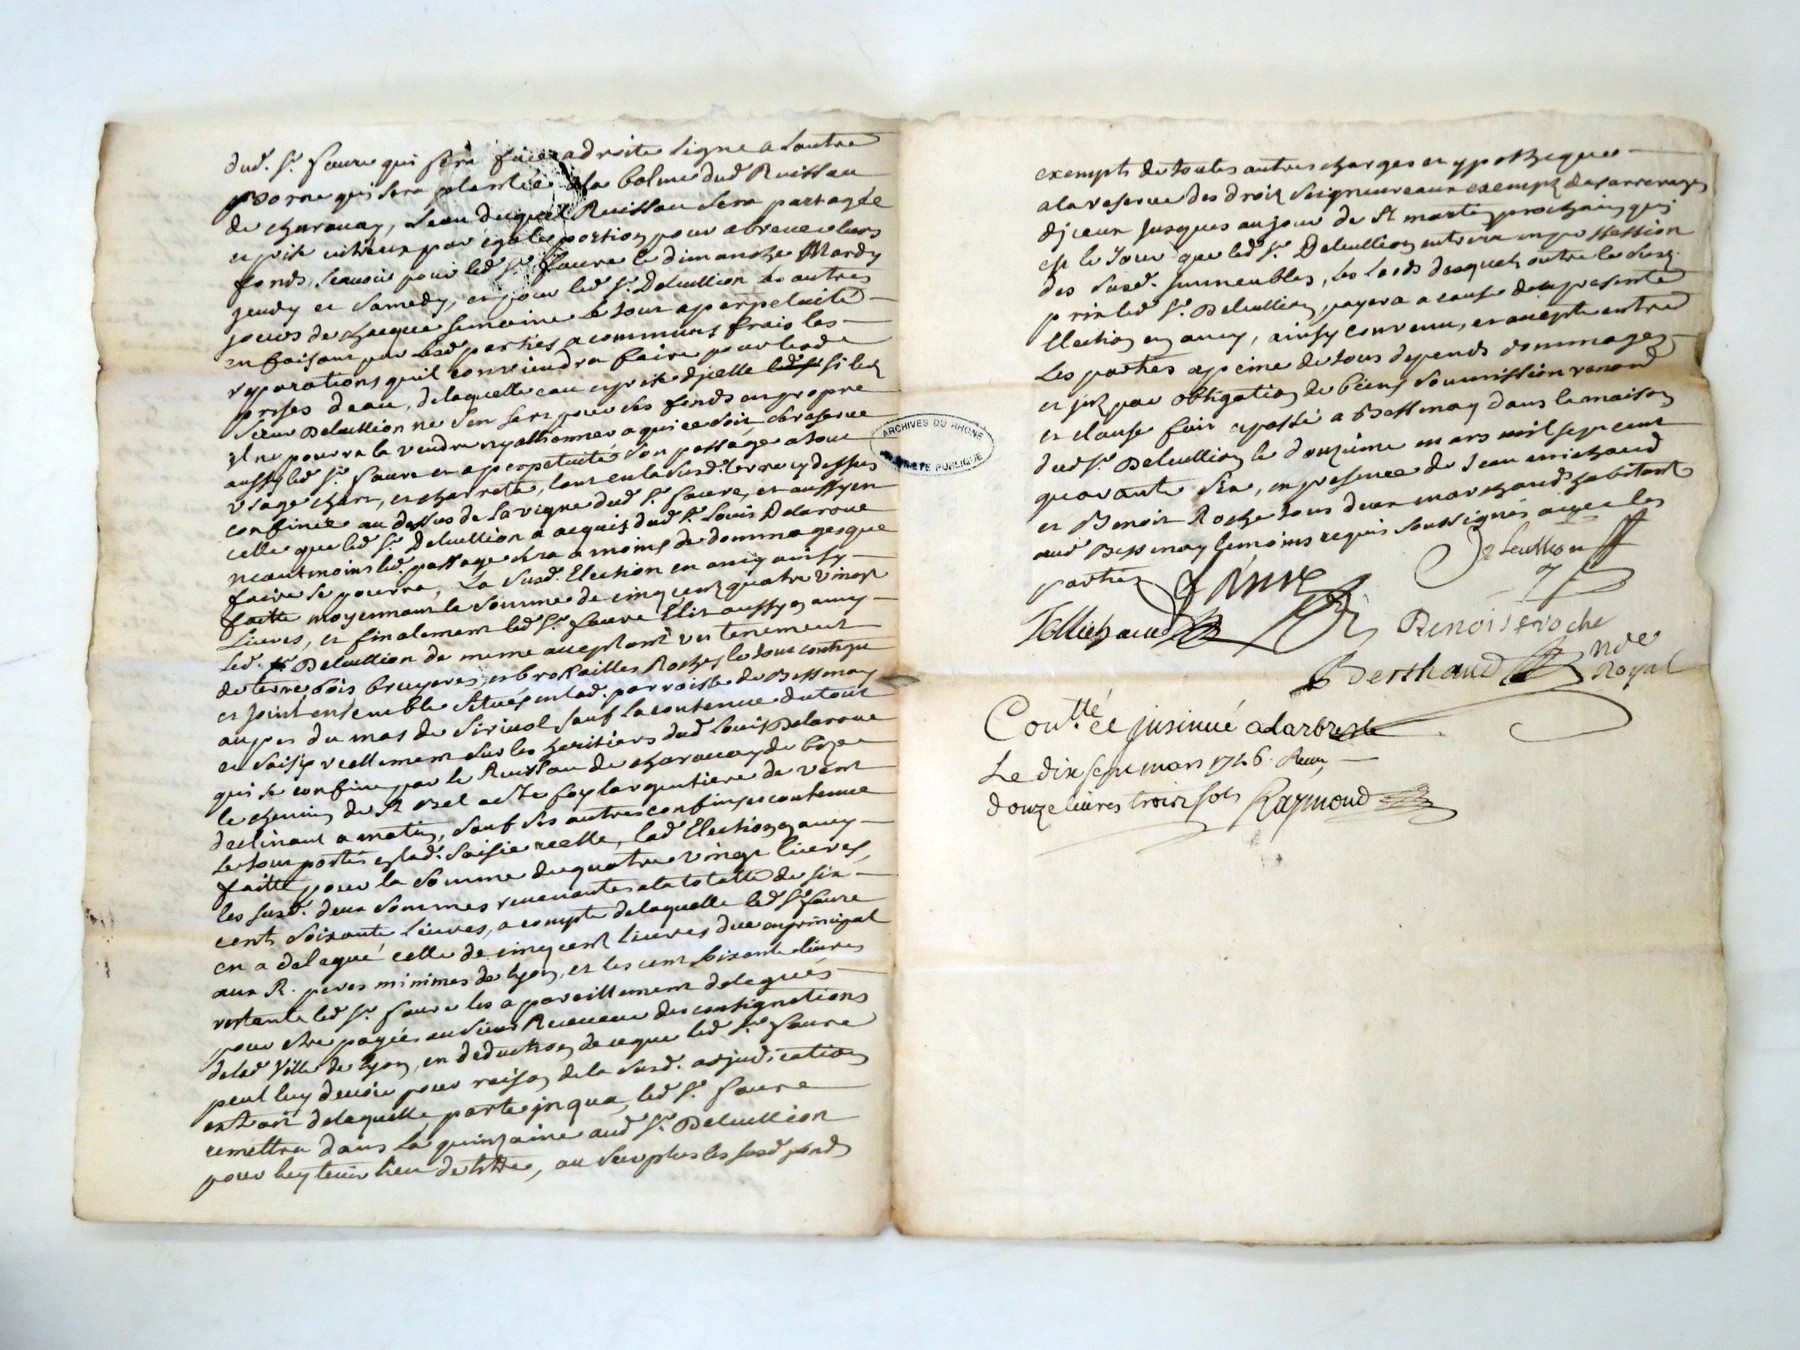 dud. Sr. faure qui sera fixée a droite ligne a lautre
borne qui sera plantée a la balme dud Ruissau
de charavay, leau duquel Ruissau sera partagée
et prise entreux par égale portion pour abreuer leurs
fonds, scauoir pour led Sr. faure le dimanche Mardy
jeudy et samedy, et pour led Sr. Deleullion les autres
jours de chaque semaine le tout a perpetuité
en faisant par lesd parties a communs frais les
reparations quil conviendra faire pour lesd
prises deau, de laquelle eau et prise djcelle si led
sieur Deleullion ne sen sert pour ses fonds en propre
il ne pourra la vendre ny albionner a qui ce soit, se reserve
aussy led Sr. faure et a perpetuité son passage a tous
usage chars, et charrette, tant en la susd. terre cy dessus
confinée au dessus de la vigne dud Sr. faure, et aussy en
celle que led Sr. Deleullion a acquis dud Sr. Louis Delaroue
neantmoins led. passage sera a moins de dommage que
faire se pourra, la susd. Election en amy ainsy
faitte moyennant la somme de cinq cent quatre vingt
liures, et finalement led Sr. faure Elit aussy en amy
led. Sr Deleullion de meme acceptant un tenement
de terre bois bruyeres et brossailles Roches le tout contigu
et joint ensemble situés en lad. parroisse de Bessenay
au pres du mas de sirivol sauf la contenue du tout
et saisis reellement sur les heritiers dud Louis Delaroue
qui se confine par le Ruissau de charavay de bize
le chemin de St Bel a Ste foy largentiere de vent
declinant a matin, sauf ses autres confins et contenue
le tout porté en lad. saisie reelle, lad Election en amy
faitte pour la somme de quatre vingt liures,
les susd. deux sommes revenantes a la totalle de six
cent soixante liures, a compte de laquelle led Sr. faure
en a delegué celle de cinq cent liures due en principal
aux R. peres minimes de Lyon, et les cent soixante liures
restante led Sr. faure les a pareillement delegués
pour etre payées au sieur Receveur des consignations
de lad Ville de Lyon, en deduction de ce que led Sr. faure
peut luy devoir pour raison de la susd. adjudication
extrait de laquelle parte in qua, led Sr. faure
remettra dans la quinzaine aud Sr. Deleullion
pour luy tenir lieu de titre, au surplus les susd fonds
exempts de toutes autres charges et ypotheques
a la reserve des droit seigneuriaux exempt darrerages
djceux jusques au jour de St martin prochain qui
est le jour que led Sr. Deleullion entrera en possession
des susd. jmmeubles, les lods desquels outre le susd.
prix led Sr. Deleullion payera a cause de la presente
Election en amy, ainsy convenu, et accepté entre
les parties a peine de tous depends dommages
et jnt. par obligation de biens soumission renond
et clause fait et passé a Bessenay dans la maison
dud Sr. Deleullion le douzieme mars mil sept cent
quarante six, en presence de jean michaud
et Benoit Roche tous deux marchands habitant
aud Bessenay temoins requis soussignés avec les
parties
Deleullion
faure
J Michaud
Benoist roche
Berthaud nore
Royal
Con.llé et jnsinué a Larbresle
Le dix sept mars 1746. Reçu
douze liures trois sols Raymond
ARCHIVES DU RHONE
PROPRIÉTÉ PUBLIQUE